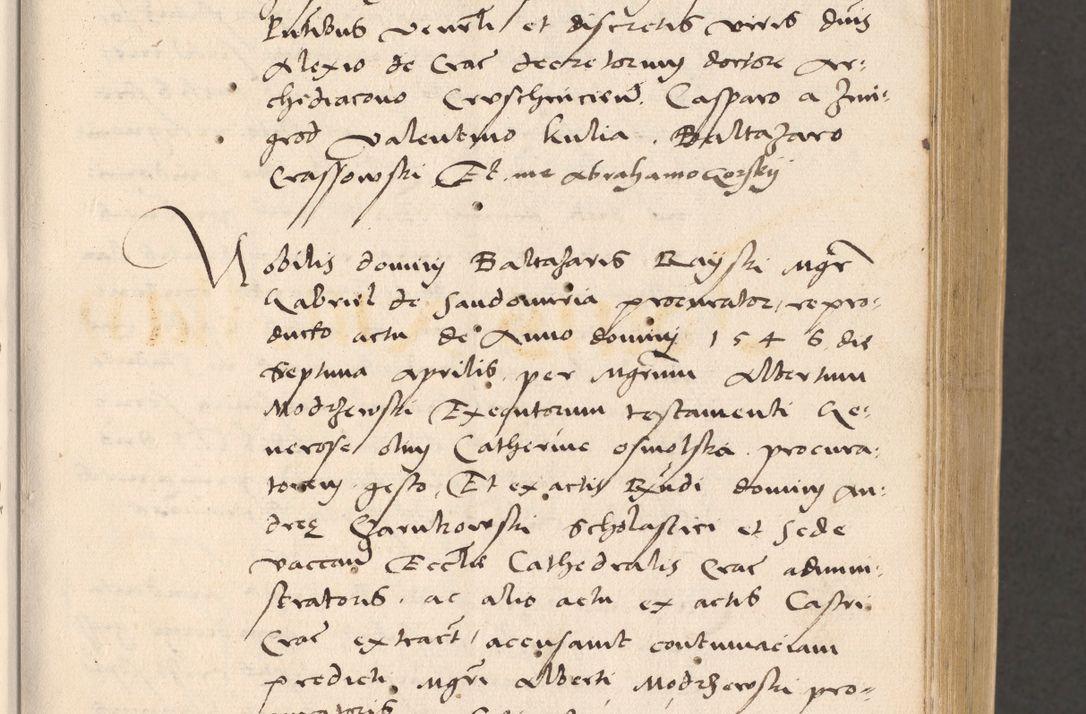 ntibus venerli et discretis viris dnis
Alexio de Crac decretorum doctore Ar-
chediacono Cruschincien. Casparo a Zmi-
grod Valentino Kulia. Baltazaro
Crassowski Et me Abrahamo Gorsky
Nobilis domini Baltasaris Rayski Mgr
Gabriel de Sandomiria procurator, repro-
ducto actu de Anno domini 1546 die
Septima Aprilis per Mgrum Albertum
Modrzewski Exequutorum testamenti Ge-
nerose olim Catherine osmolska procura-
torem gesto, Et ex actis Rndi domini An-
dreę Czarnkowski Scholastici et Sede
vaccan Eccle Cathedralis Crac admini-
stratoris, ac alio actu ex actis Castri
Crac extract, accusavit contumaciam
predicti Mgri Alberti Modrzewski pro-